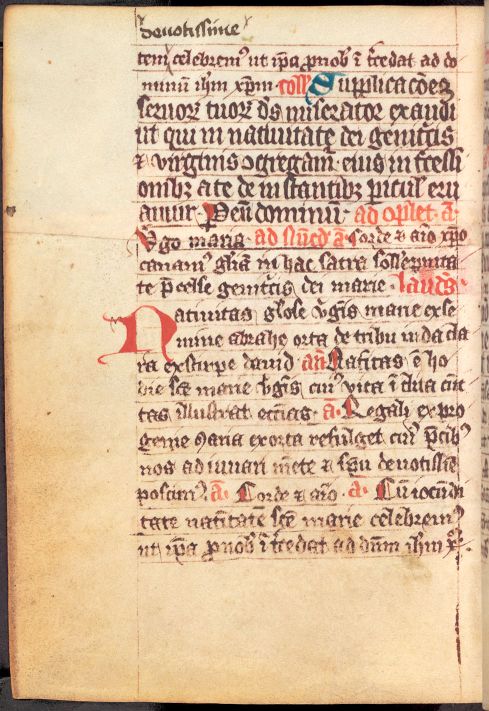 deuotissime
tem celebrem⁹ ut ip̄a p̄ nob̄ ĩ t̄cedat ad do
minum ih̄m xp̄m coll̄ Supplicac̄oēs
seruoꝝ tuoꝝ d̄s miserator exaudi
ut qui in natiuitate dei genit̄cis
⁊ virginis ꝯgregam̄ eius in t̄cessi
onibꝫ a te de instantibꝫ picul̄ eru
amur p̄ eūdem dominū ad
Ꝟgo maria ad a̅ Corde ⁊ aīo xp̄o
canam⁹ gl̄iam in hac sacra sollempnita
te p̄celse genit̄cis dei marie laud̄
Natiuitas gl̄ose v̄gīs marie ex se
mine abrahe orta de tribu iuda cla
ra ex stirpe dauid añ Natītas ē ho
die sc̄e marie v̄gīs cui⁹ vita ī clita cūc
tas illustrat ecc̄ias a̅ Regali ex pro
genie Maria exorta refulget cui⁹ p̄cib⁹
nos adiuuari mēte ⁊ sp̄u deuotissīe
poscim⁹ a̅ Corde ⁊ aīo a̅ Cū iocūdi
tate natītatē sc̄e marie celebrem⁹
ut ip̄a p̄ nob̄ ī t̄cedat ad dn̄m ih̄m x̄